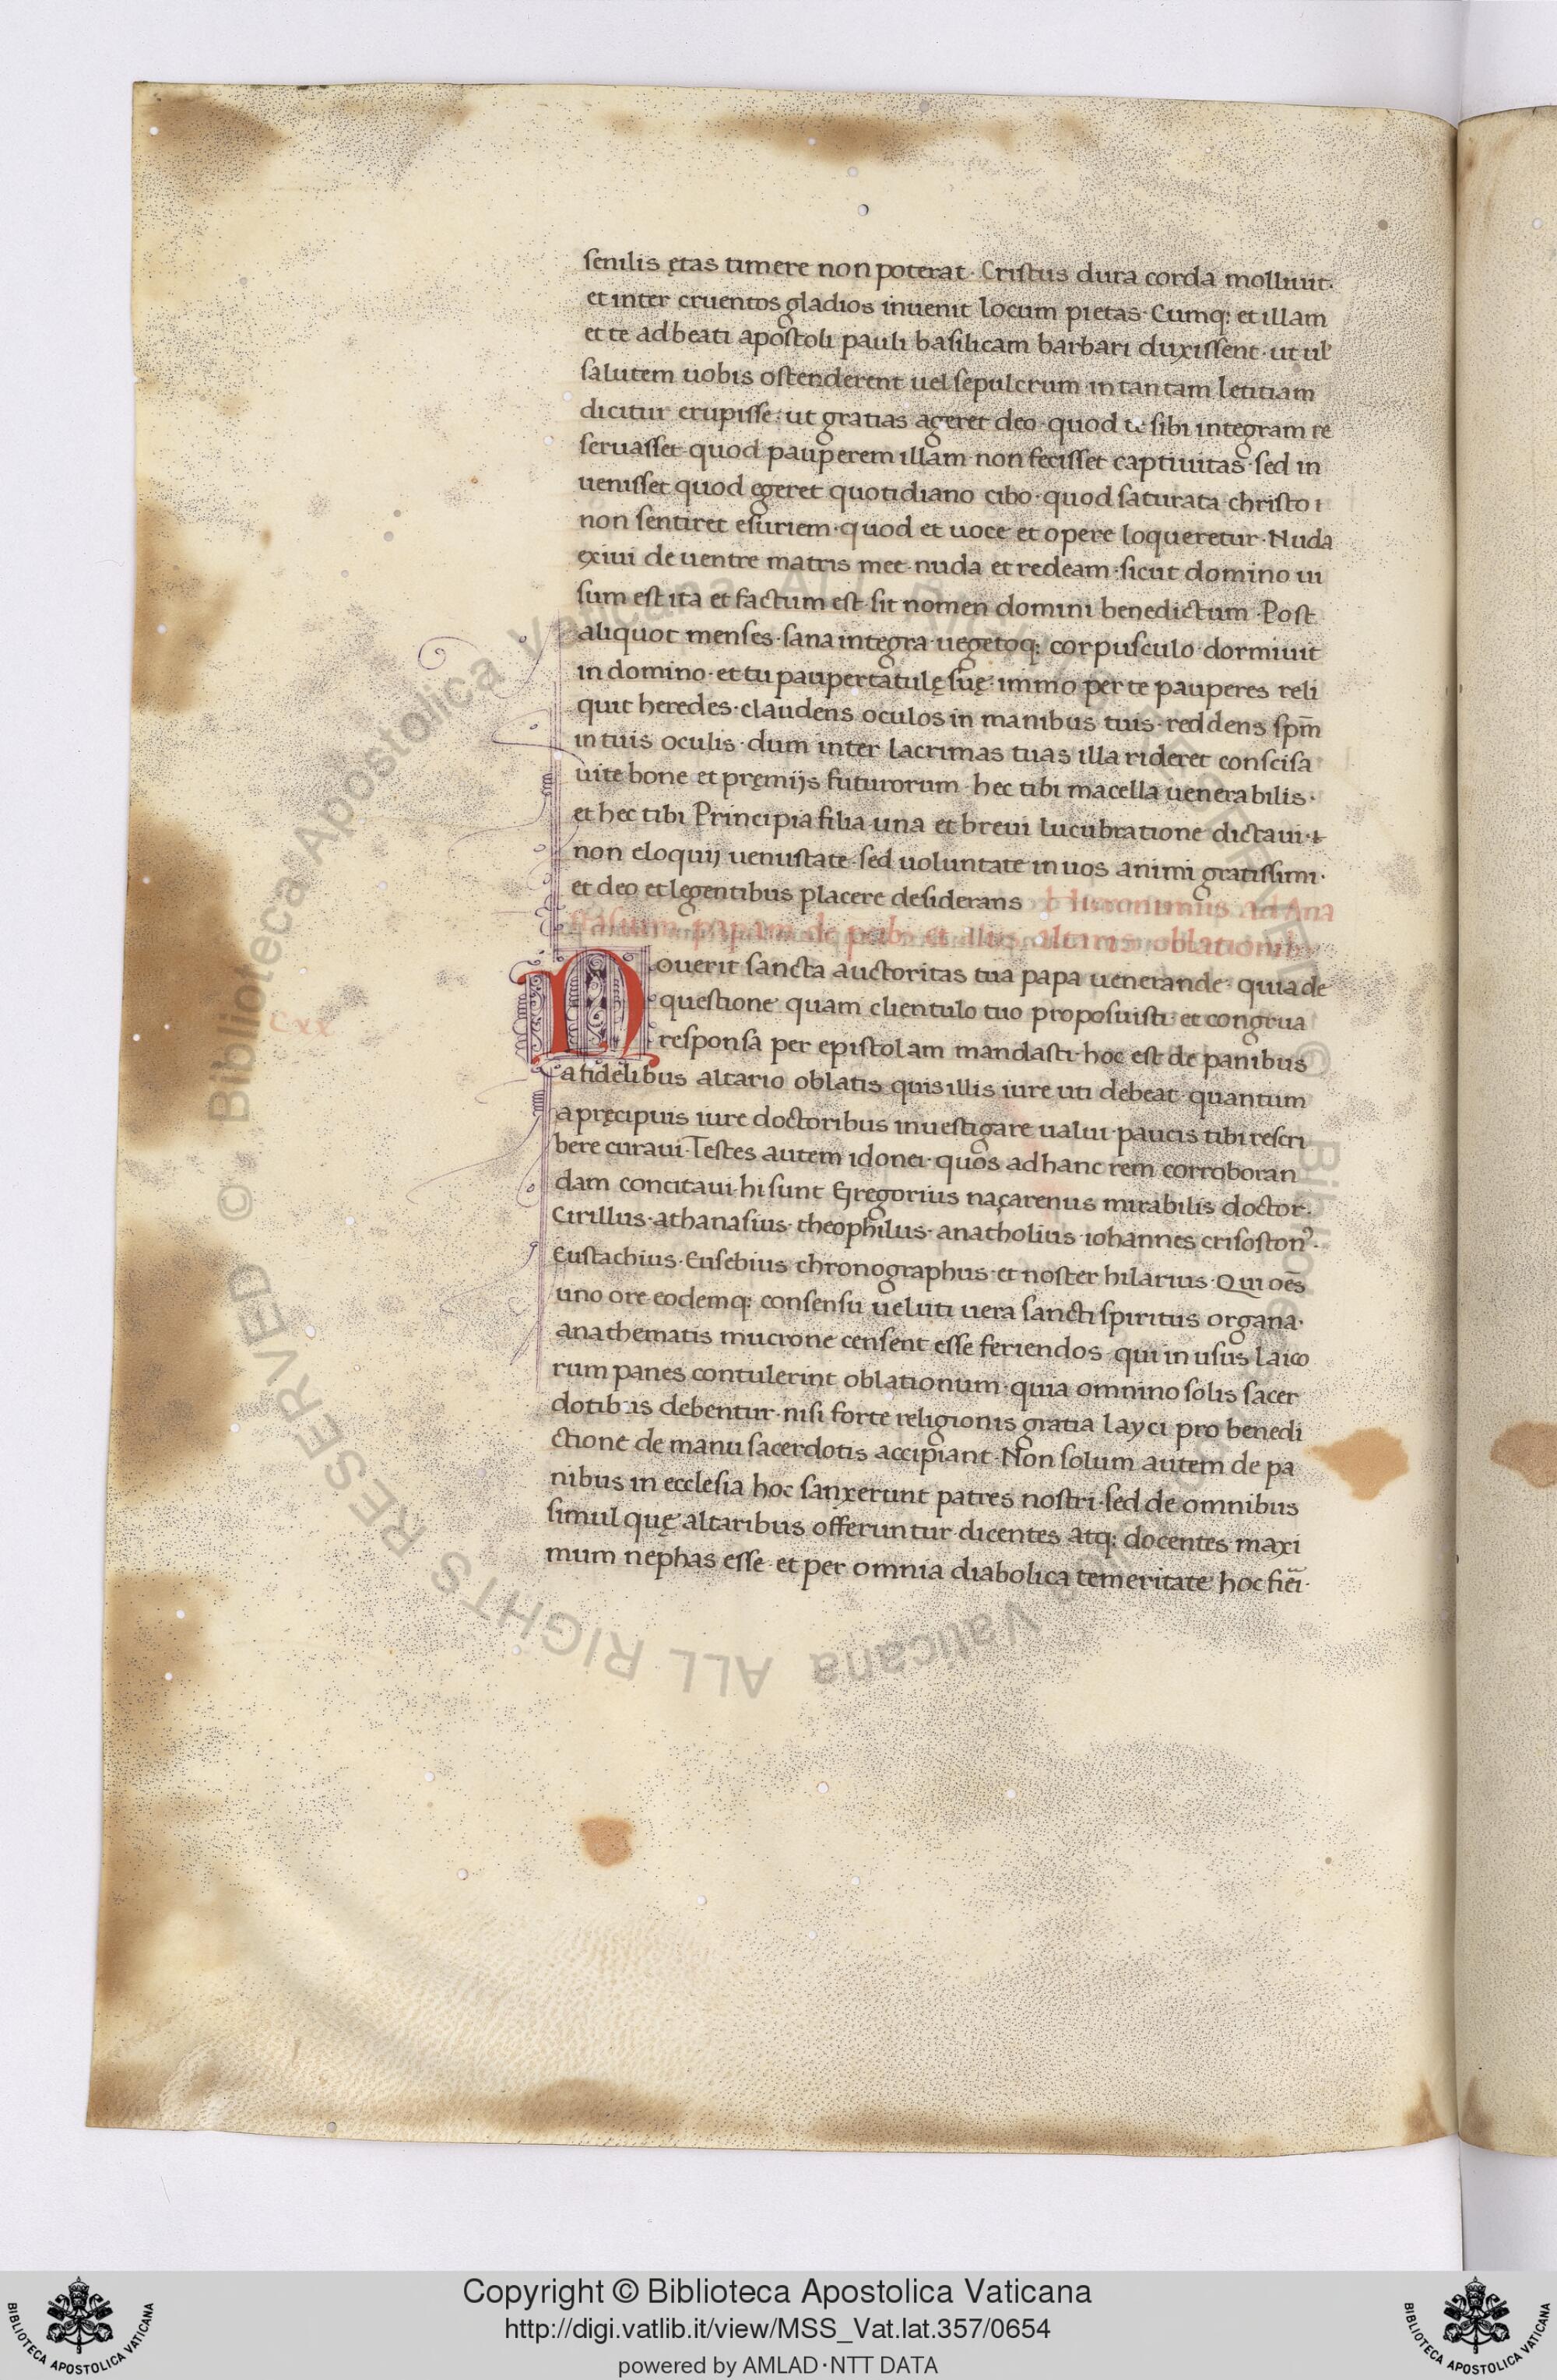 senilis ętas timere non poterat · Cristus dura corda molliuit ·
et inter cruentos gladios inuenit locum pietas · Cumq; et illam
et te ad beati apostoli pauli basilicam barbari duxissent · ut ul̄
salutem uobis ostenderent uel sepulcrum in tantam letitiam
dicitur erupisse · ut gratias ageret deo · quod te sibi integram re
seruasset · quod pauperem illam non fecisset captiuitas · sed in
uenisset quod egeret quotidiano cibo · quod saturata christo
non sentiret esuriem · quod et uoce et opere loqueretur · Nuda
exiui de uentre matris mee · nuda et redeam · sicut domino ui
sum est ita et factum est · sit nomen domini benedictum · Post
aliquot menses · sana integra uegetoq; corpusculo dormiuit
in domino · et tu paupertatulę suę · immo per te pauperes reli
quit heredes · claudens oculos in manibus tuis · reddens spm̄
in tuis oculis · dum inter lacrimas tuas illa rideret conscisa
uite bone et pręmijs futurorum · hec tibi macella uenerabilis ·
et hec tibi Principia filia una et breui lucubratione dictaui ·
non eloquij uenustate · sed uoluntate in uos animi gratissimi ·
et deo et legentibus placere desiderans Hieronimus ad Ana
stasium papam de et alijs altaris
Nouerit sancta auctoritas tua papa uenerande · quia de
questione quam clientulo tuo proposuisti et congrua
cxx
responsa per epistolam mandasti · hoc est de panibus
a fidelibus altario oblatis quis illis iure uti debeat · quantum
a pręcipuis iure doctoribus inuestigare ualui · paucis tibi rescri
bere curaui · Testes autem idonei · quos ad hanc rem corroboran
dam concitaui hi sunt Gregorius naçarenus mirabilis doctor ·
Cirillus · athanasius · theophilus · anatholius · iohannes crisoston⁹ ·
Eustachius · Eusebius chronographus et noster hilarius · Qui oēs
uno ore eodemq; consensu ueluti uera sancti spiritus organa ·
anathematis mucrone censent esse feriendos · qui in usus laico
rum panes contulerint oblationum · quia omnino solis sacer
dotibus debentur · nisi forte religionis gratia layci pro benedi
ctione de manu sacerdotis accipiant · Non solum autem de pa
nibus in ecclesia hoc sanxerunt patres nostri · sed de omnibus
simul quę altaribus offeruntur · dicentes atq; docentes maxi
mum nephas esse · et per omnia diabolica temeritate hoc fiēi ·
© Biblioteca Apostolica Vaticana ALL RIGHTS RESERVED
Copyright © Biblioteca Apostolica Vaticana
http://digi.vatlib.it/view/MSS_Vat.lat.357/0654
powered by AMLAD·NTT DATA
BIBLIOTECA APOSTOLICA VATICANA
BIBLIOTECA APOSTOLICA VATICANA